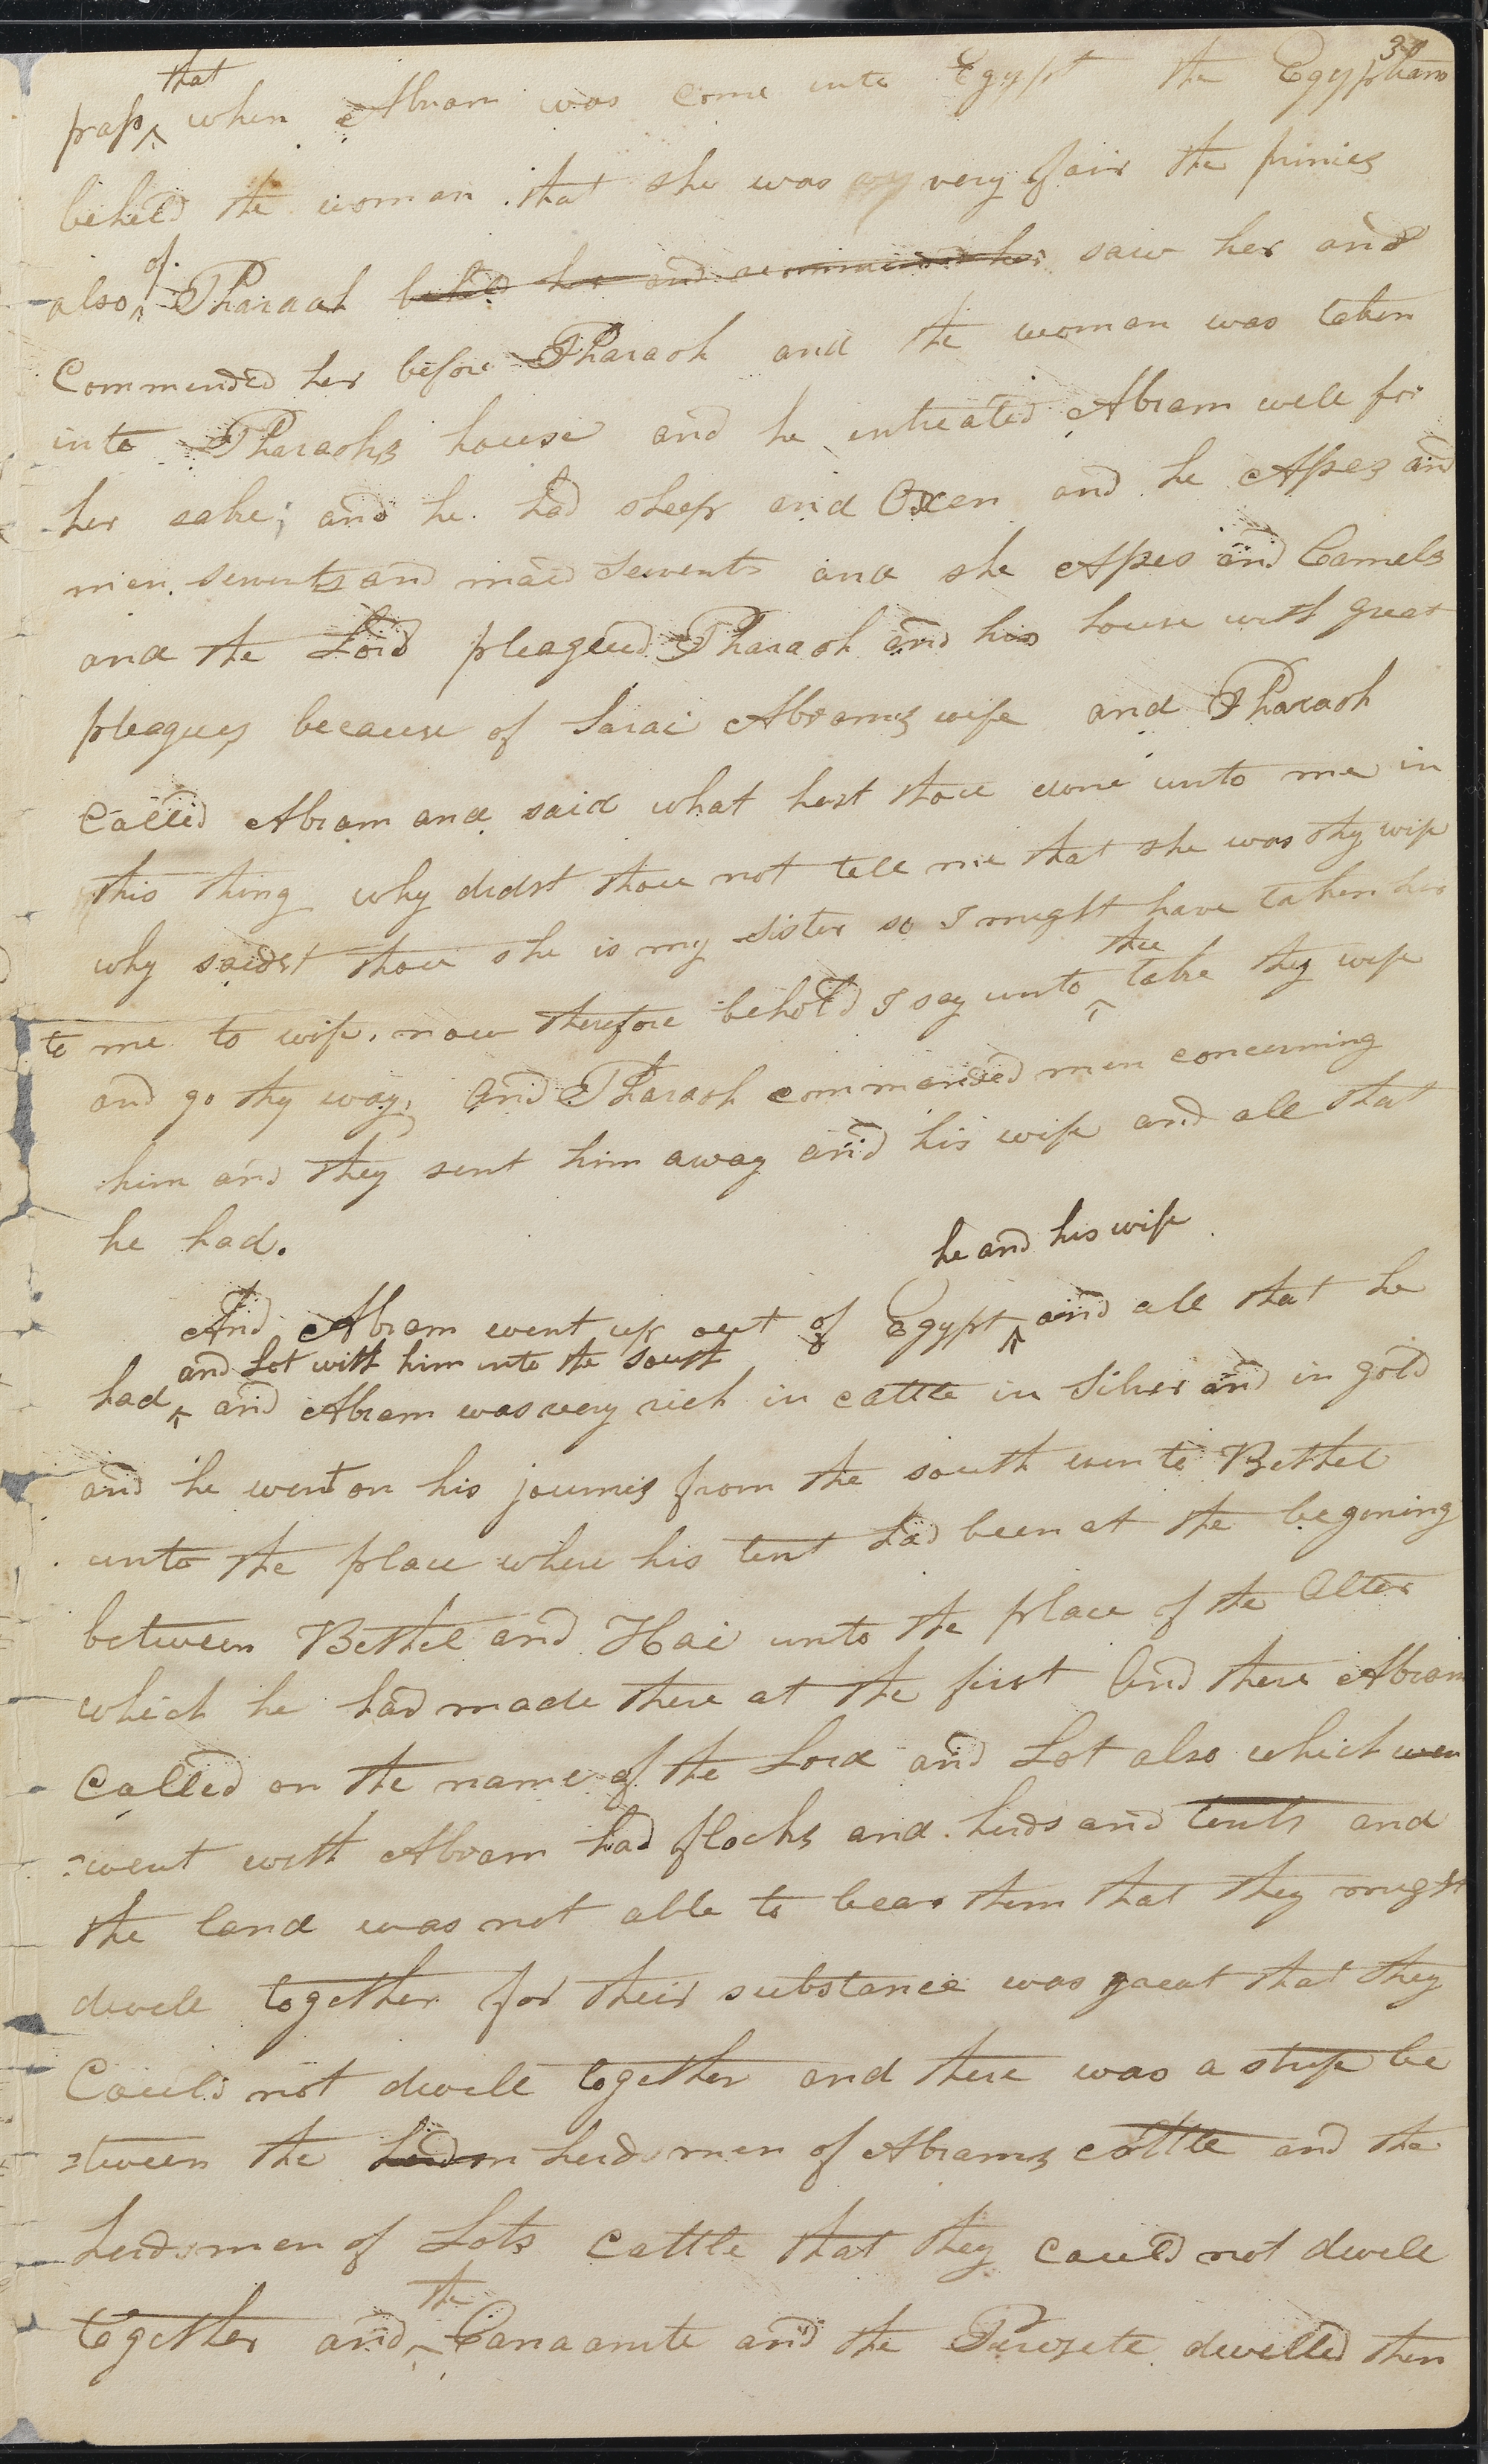 30
that
pass ^ when Abram was come into Egypt the Egyptians
beheld the woman that she was very fair the princes
of
also ^ Pharaoh beheld her and commended her saw her and
Commended her before Pharaoh and the woman was taken
into Pharaohs house and he intreated Abram well for
her sake; and he had sheep and Oxen and he Asses and
men servents and maid servents and she Asses and Camels
and the Lord pleagued Pharaoh and his house with great
pleagues because of Sarai Abrams wife and Pharaoh
Called Abram and said what hast thou done unto me in
this thing why didst thou not tell me that she was thy wife
why saidst thou she is my sister so I might have taken her
thee
to me to wife, now therefore behold I say unto ^ take thy wife
and go thy way, and Pharaoh commanded men concerning
him and they sent him away and his wife and all that
he had.
he and his wife
And Abram went up out of Egypt ^ and all that he
and Lot with him into the south
had ^ and Abram was very rich in cattle in silver and in gold
and he went on his journes from the south even to Bethel
unto the place where his tent had been at the begining
between Bethel and Hai unto the place of the Alter
which he had made there at the first And there Abram
Called on the name of the Lord and Lot also which wen
went with Abram had flocks and herds and tents and
the land was not able to bear them that they might
dwell together for their substance was graeat that they
Could not dwell together and there was a strife be
=tween the herdm herdsmen of Abrams cattle and the
herdsmen of Lots cattle that they could not dwell
the
together and ^ Canaanite and the Perezete dwelled then